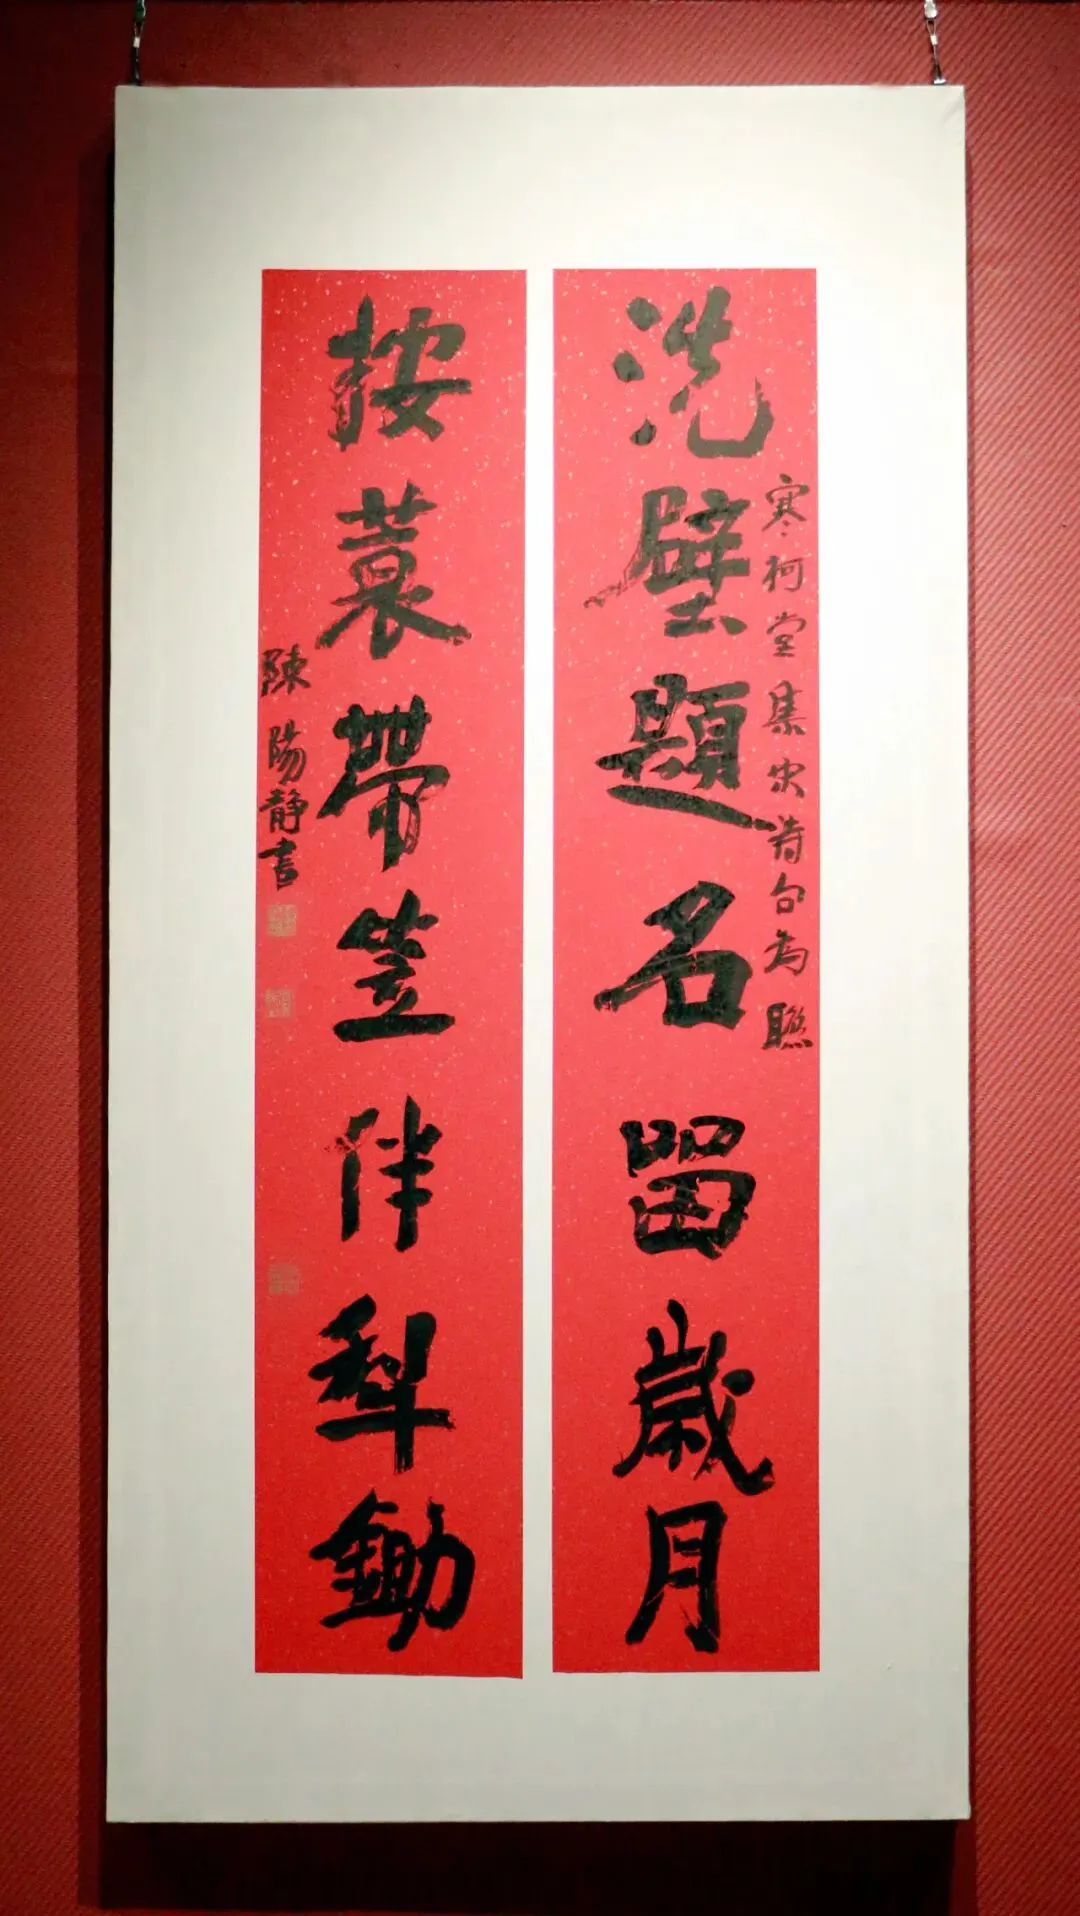 洗壁題名留歲月
寒柯堂集宋詩句為聯
按蓑帶笠伴犁鋤
陳陽靜書